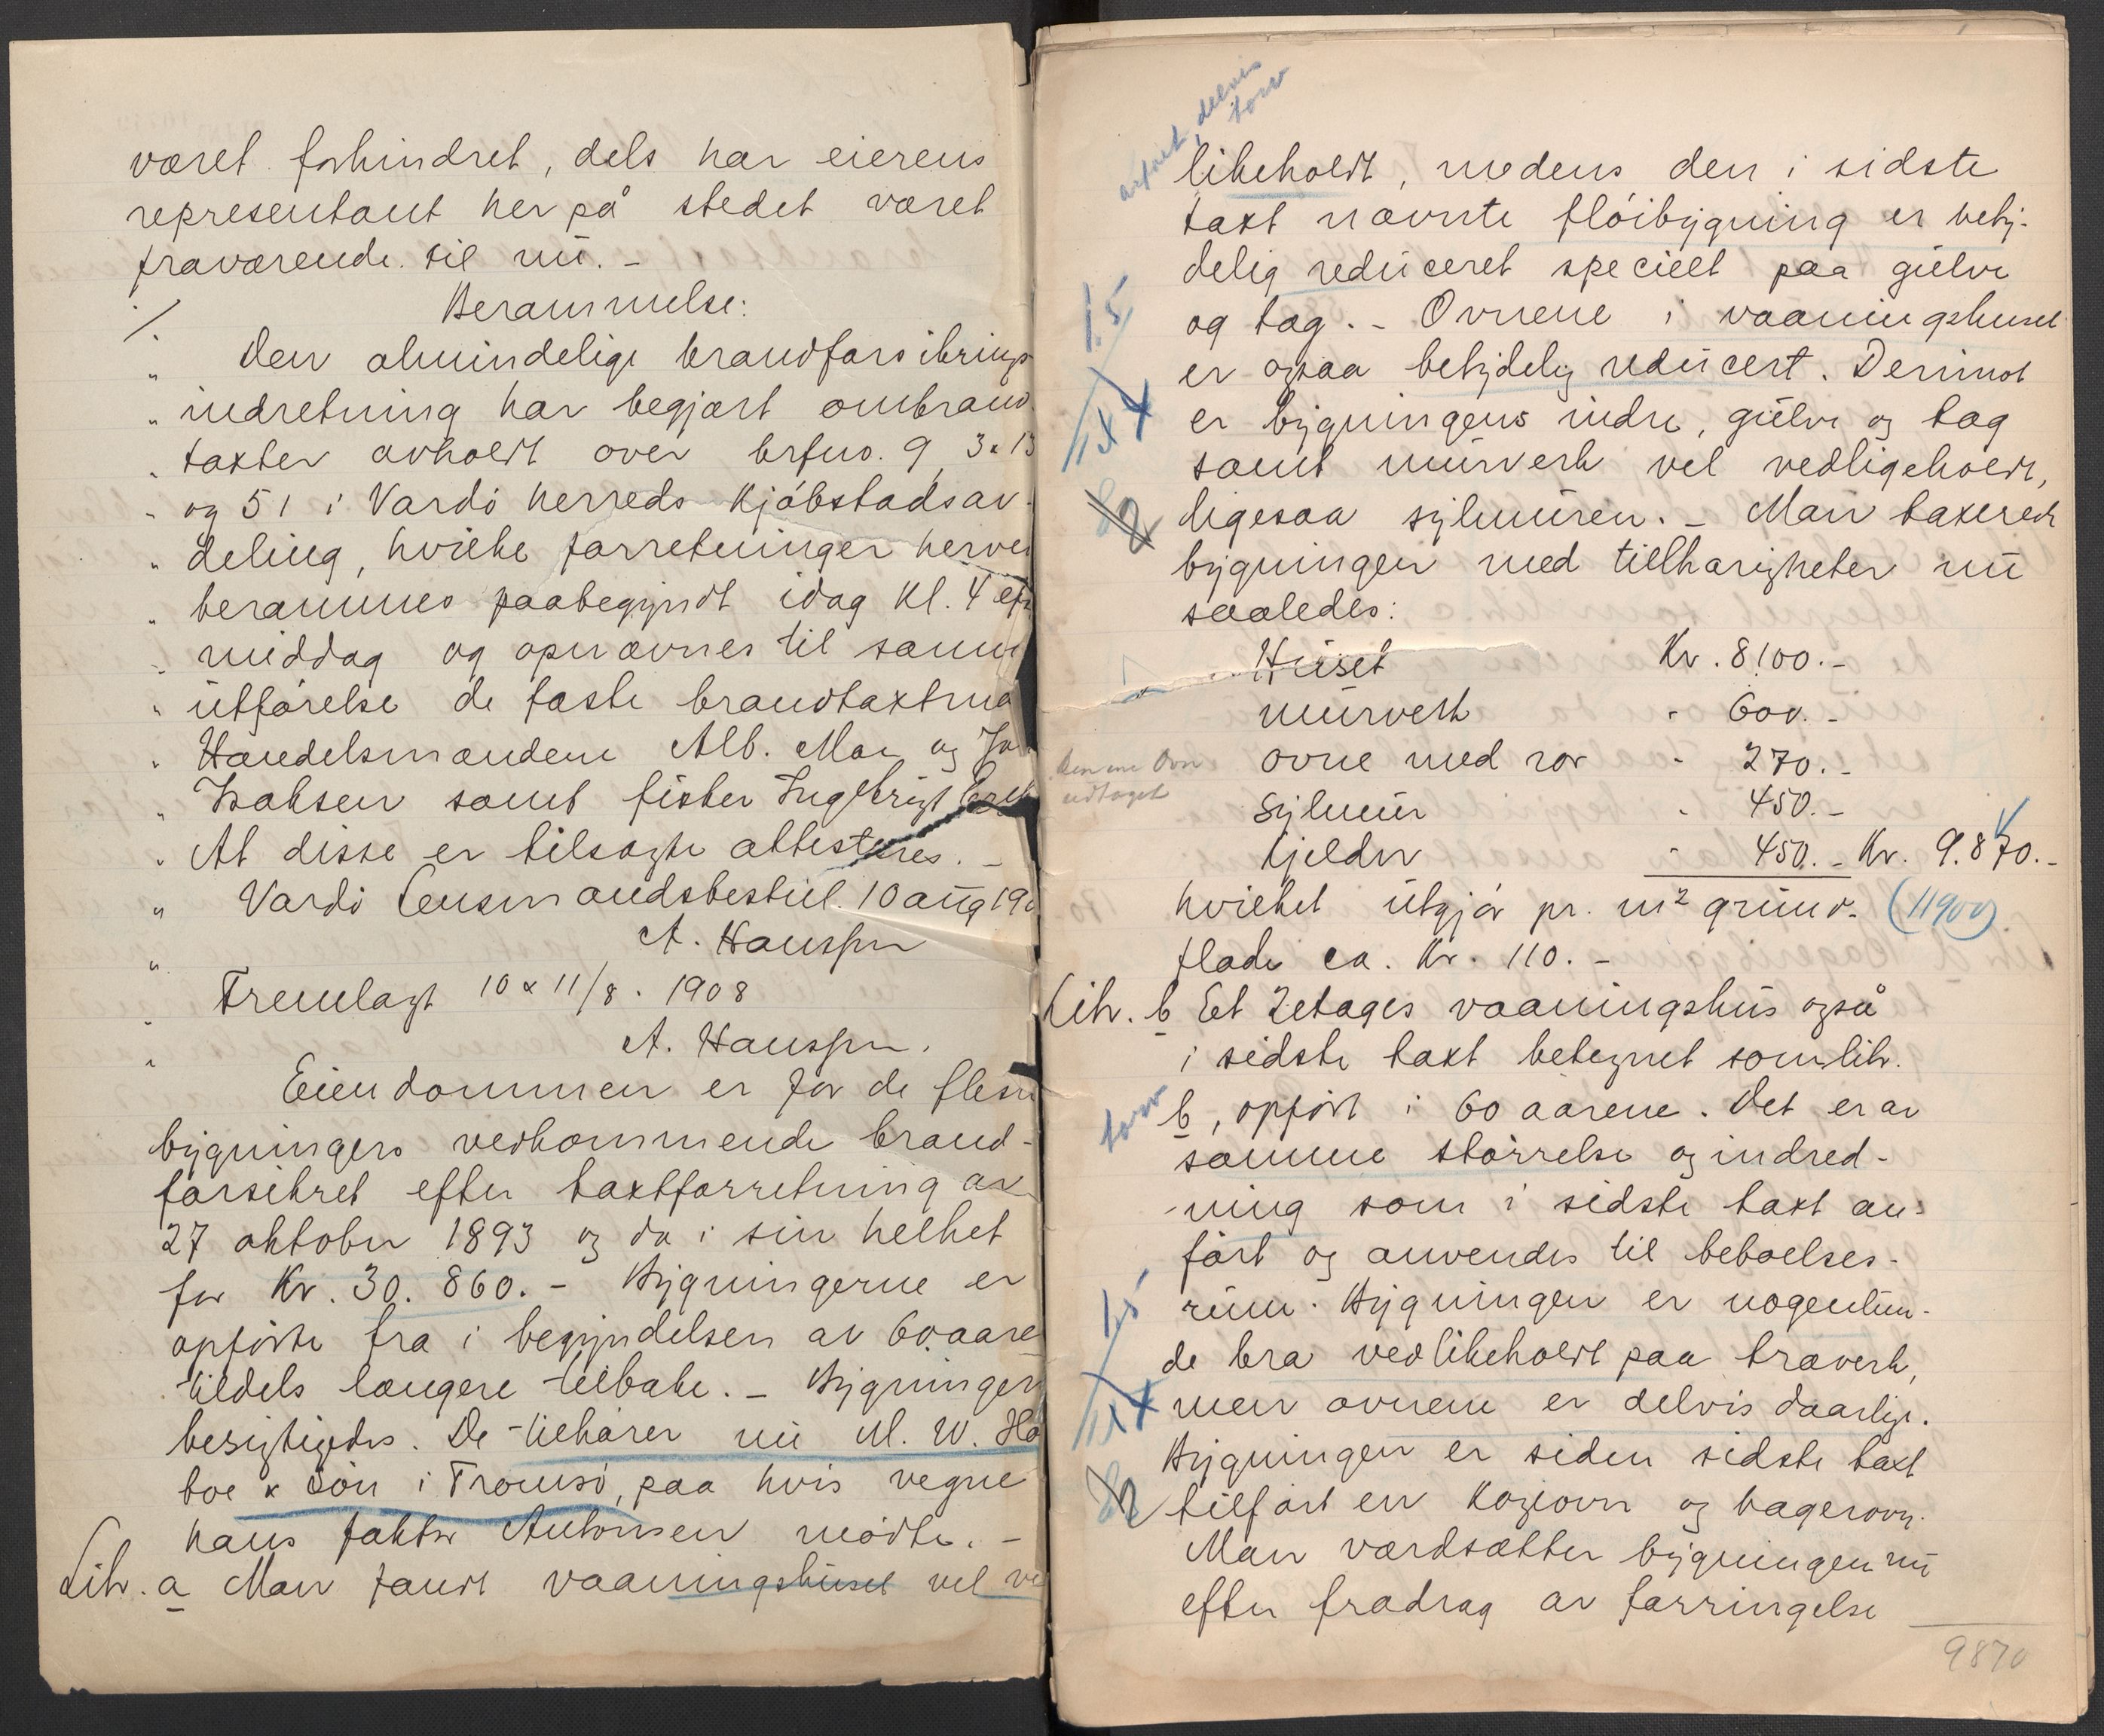 været forhindret, dels har eierens
representant her på stedet været
fraværende til nu. -
Berammelse:
Den almindelige brandforsikrings
" indretning har begjært ombrand
" taxter avholdt over brfno. 9, 3 & 13
" og 51 i Vardö herreds kjöbstadsav-
" deling, hvilke forretninger herved
" berammes paabegyndt idag Kl. 4 eft
" middag og opnævnes til samme
" utförelse de faste brandtaxtmæ
" Handelsmændene Alb. Mar og
" Isaksen samt fisker Ingebrigt
" At disse er tilsagte attesteres. -
" Vardö Lensmandsbestill. 10 aug 190
" A. Hanssen
" Fremlagt 10 & 11/8. 1908
" A. Hanssen.
Eiendommen er for de fleste
bygningers vedkommende brand-
forsikret efter taxtforretning av
27 oktober 1893 og da i sin helhet
for Kr. 30.860. - Bygningerne er
opförte fra i begyndelsen av 60 aare
tildels længere tilbake. - Bygningen
besigtigedes. De tilhører nu M. W. Hol
boe & Sön i Tromsö, paa hvis vegne
hans faktor Antonsen mödte. -
Litr. a Man fandt vaaningshuset vel ved
delvis
torv
likeholdt, medens den i sidste
taxt nævnte flöibygning er bety-
delig reduceret specielt paa gulve
og tag. - Ovnene i vaaningshuset
er ogsaa betydelig reducert. Derimot
er bygningens indre, gulve og tag
samt murverk vel vedligeholdt,
ligesaa sylmuren. - Man taxerer
bygningen med tilharigheter nu
saaledes:
Huset Kr. 8100.-
murverk " 600.-
Den ene Ovn
udtaget
ovne med rör " 270.-
Sylmur " 450.-
Kjelder " 450.- Kr. 9.870.-
hvilket utgjör pr. m² grund- (11900)
flade ca. Kr. 110. -
Litr. b Et 2etages vaaningshus også
i sidste taxt betegnet som litr.
torv
b, opfört i 60 aarene. Det er av
samme störrelse og indred-
ning som i sidste taxt an-
fört og anvendes til beboelses-
1.5
rum. Bygningen er nogenlun-
de bra vedlikeholdt paa træverk,
men ovnene er delvis daarlige.
Bygningen er siden sidste taxt
tilfört en kogeovn og bagerovn.
Man værdsætter bygningen nu
efter fradrag av forringelse
9870